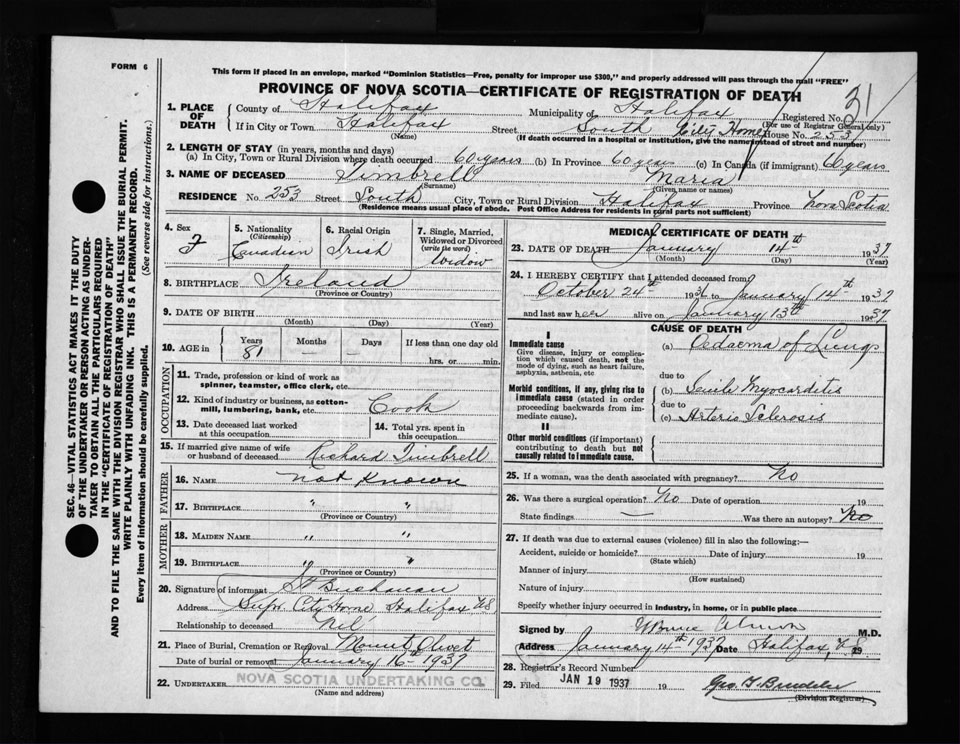 FORM 6
This form if placed in an envelope, marked "Dominion Statistics—Free, penalty for improper use $300," and properly addressed will pass through the mail "FREE"
PROVINCE OF NOVA SCOTIA—CERTIFICATE OF REGISTRATION OF DEATH
31
1. PLACE OF DEATH
County of Halifax Municipality of Halifax Registered No.
(For use of Registrar General only)
If in City or Town Halifax Street South City Home House No. 253
(Name) (If death occurred in a hospital or institution, give the name instead of street and number)
2. LENGTH OF STAY (in years, months and days)
(a) In City, Town or Rural Division where death occurred 60 years (b) In Province 60 years (c) In Canada (if immigrant) 60 years
3. NAME OF DECEASED Timbrell Maria
(Surname) (Given name or names)
RESIDENCE No. 253 Street South City, Town or Rural Division Halifax Province Nova Scotia
(Residence means usual place of abode. Post Office Address for residents in rural parts not sufficient)
4. Sex F
5. Nationality (Citizenship) Canadian
6. Racial Origin Irish
7. Single, Married, Widowed or Divorced (write the word) Widow
8. BIRTHPLACE Ireland
(Province or Country)
9. DATE OF BIRTH
(Month) (Day) (Year)
10. AGE in Years 81 Months — Days — If less than one day old hrs. or min.
OCCUPATION
11. Trade, profession or kind of work as spinner, teamster, office clerk, etc.
12. Kind of industry or business, as cotton-mill, lumbering, bank, etc. Cook
13. Date deceased last worked at this occupation
14. Total yrs. spent in this occupation
15. If married give name of wife or husband of deceased Richard Timbrell
FATHER
16. NAME not Known
17. BIRTHPLACE " "
(Province or Country)
MOTHER
18. MAIDEN NAME " "
19. BIRTHPLACE " "
(Province or Country)
20. Signature of informant Buchanan
Address Supt. City Home, Halifax NS
Relationship to deceased Nil
21. Place of Burial, Cremation or Removal Mount Olivet
Date of burial or removal January 16 - 1937
22. UNDERTAKER NOVA SCOTIA UNDERTAKING CO.
(Name and address)
MEDICAL CERTIFICATE OF DEATH
23. DATE OF DEATH January 14th 1937
(Month) (Day) (Year)
24. I HEREBY CERTIFY that I attended deceased from
October 24th 1936 to January 14th 1937
and last saw her alive on January 13th 1937
CAUSE OF DEATH
I
Immediate cause
Give disease, injury or complication which caused death, not the mode of dying, such as heart failure, asphyxia, asthenia, etc
(a) Oedaema of Lungs
due to
Morbid conditions, if any, giving rise to immediate cause (stated in order proceeding backwards from immediate cause).
(b) Senile Myocarditis
due to
(c) Arterio Sclerosis
II
Other morbid conditions (if important) contributing to death but not causally related to immediate cause.
25. If a woman, was the death associated with pregnancy? No
26. Was there a surgical operation? No Date of operation 19
State findings — Was there an autopsy? No
27. If death was due to external causes (violence) fill in also the following:—
Accident, suicide or homicide? Date of injury 19
(State which)
Manner of injury
(How sustained)
Nature of injury
Specify whether injury occurred in industry, in home, or in public place
Signed by Bruce Almon M.D.
Address January 14th 1937 Date Halifax, N.S. 29
28. Registrar's Record Number
29. Filed JAN 19 1937 19
(Division Registrar)
SEC. 46—VITAL STATISTICS ACT MAKES IT THE DUTY
OF THE UNDERTAKER OR PERSON ACTING AS UNDERTAKER
TO OBTAIN ALL THE PARTICULARS REQUIRED
IN THE "CERTIFICATE OF REGISTRATION OF DEATH"
AND TO FILE THE SAME WITH THE DIVISION REGISTRAR WHO SHALL ISSUE THE BURIAL PERMIT.
WRITE PLAINLY WITH UNFADING INK. THIS IS A PERMANENT RECORD.
Every item of information should be carefully supplied. (See reverse side for instructions.)